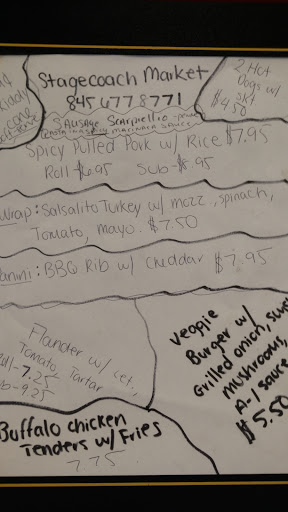 Stagecoach Market
845 677 8771
2 Hot
Dogs w/
$4.50
Kiddy
Cone
Sausage Scarpiello
marinara sauce
Spicy Pulled Pork w/ Rice $7.95
Roll $6.95 Sub $8.95
Wrap: Salsalito Turkey w/ mozz, spinach,
Tomato, mayo. $7.50
anini: BBQ Rib w/ cheddar $7.95
Flounder w/ Let.,
Tomato, Tartar
oll-7.25
b-9.25
Veggie
Burger w/
Grilled onion, swiss
mushroom,
A-1 sauce
$5.50
Buffalo chicken
Tenders w/ Fries
7.75